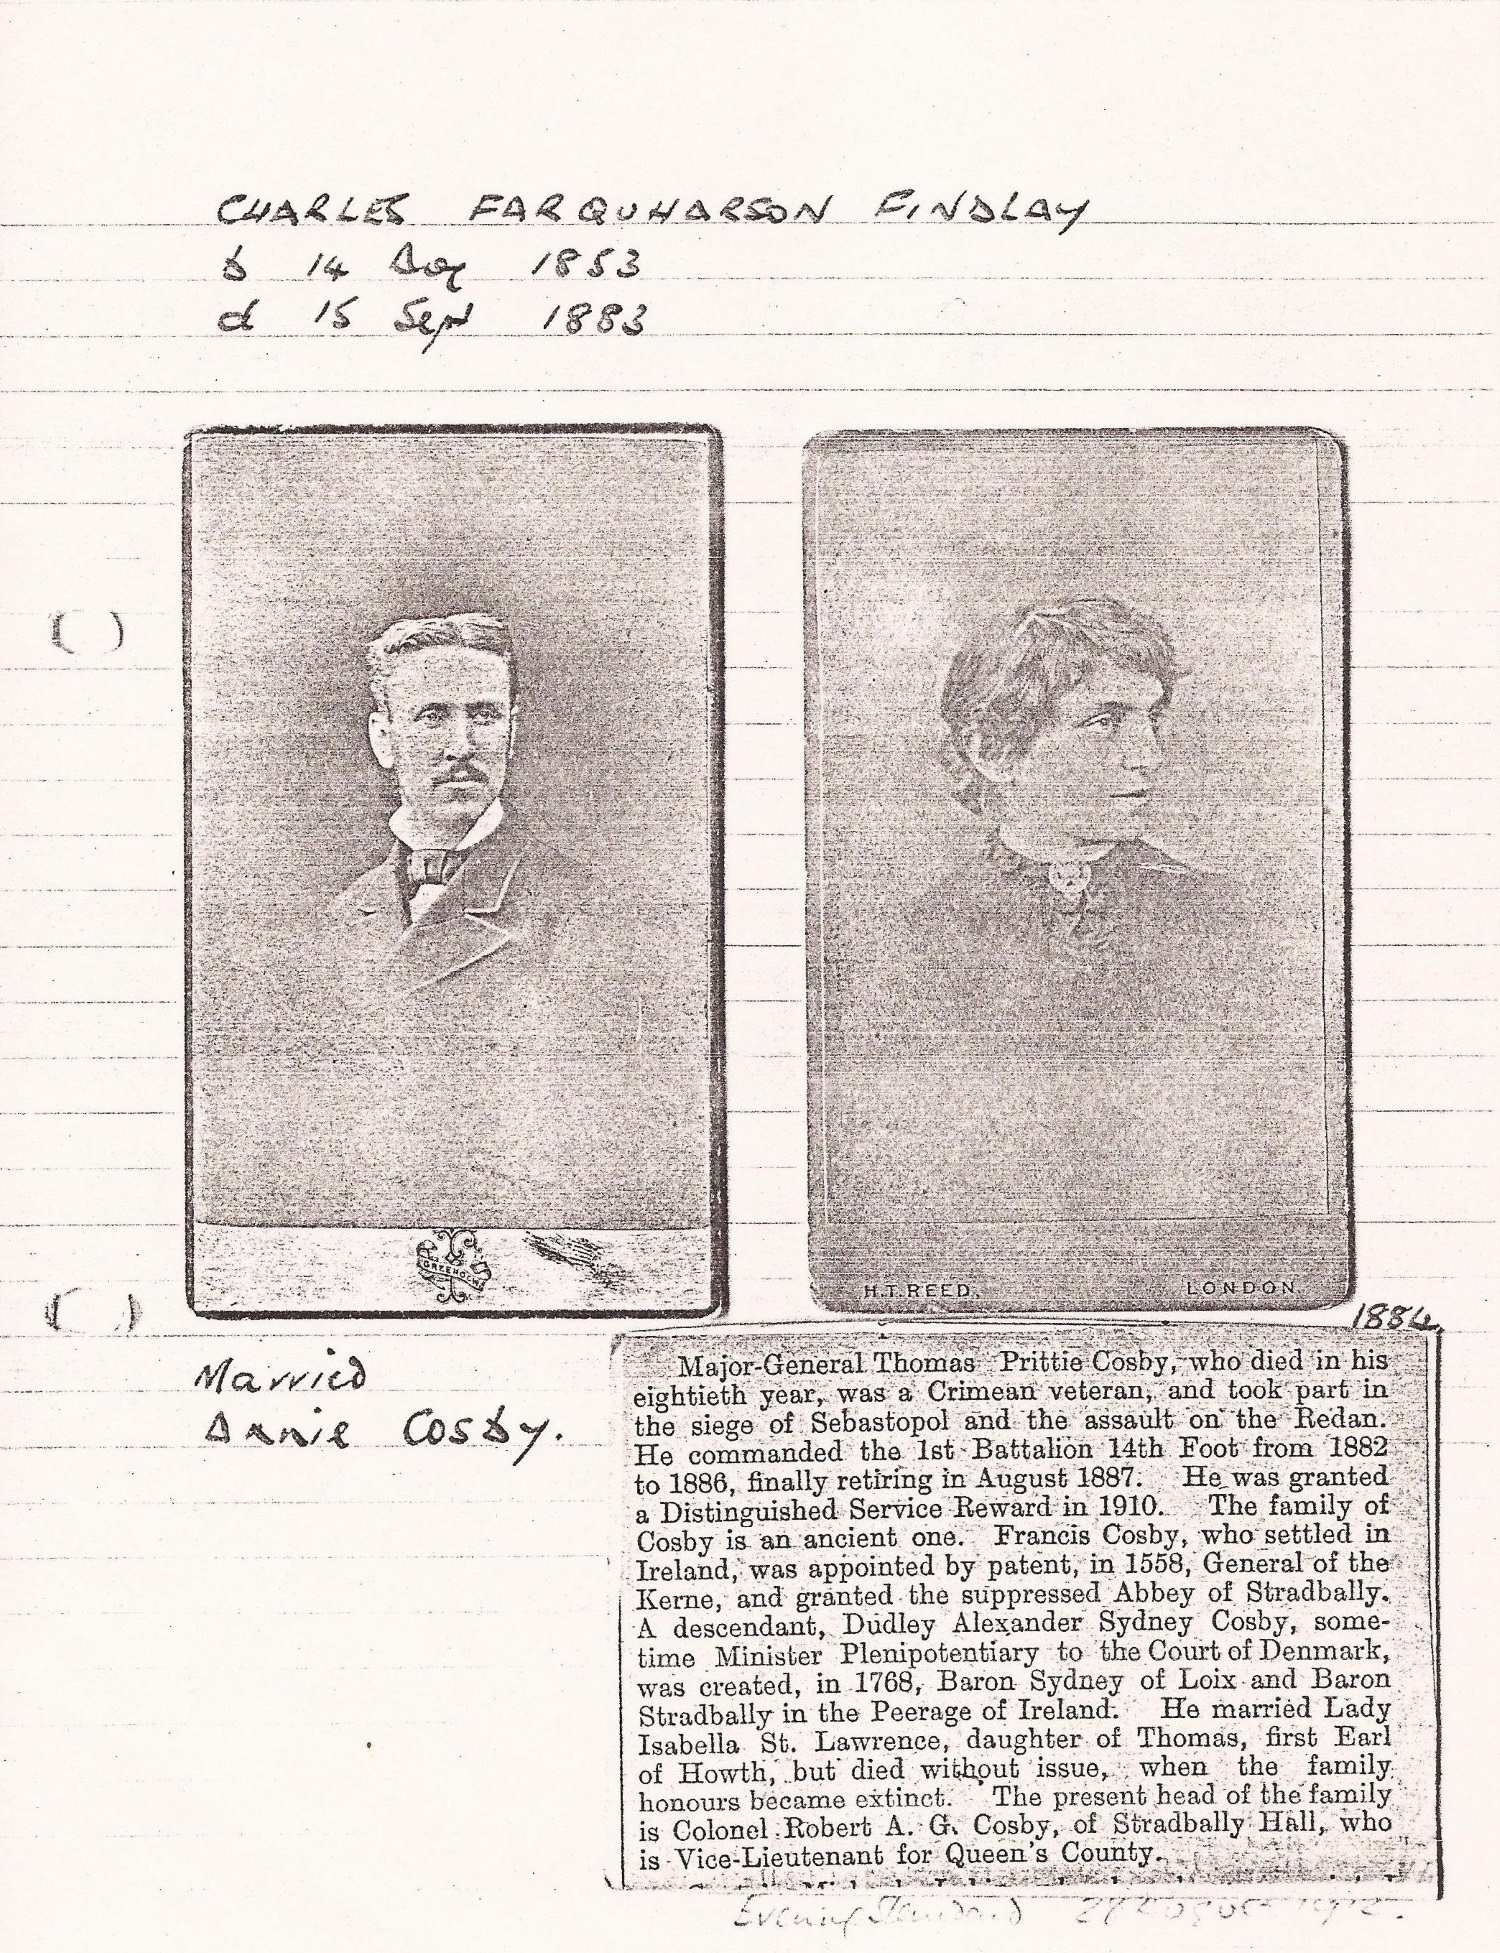 CHARLES FARQUHARSON FINDLAY
b 14 Aug 1853
d 15 Sept 1883
H.T. REED. LONDON.
1884
Married
Annie Cosby.
Major-General Thomas Prittie Cosby, who died in his
eightieth year, was a Crimean veteran, and took part in
the siege of Sebastopol and the assault on the Redan.
He commanded the 1st Battalion 14th Foot from 1882
to 1886, finally retiring in August 1887. He was granted
a Distinguished Service Reward in 1910. The family of
Cosby is an ancient one. Francis Cosby, who settled in
Ireland, was appointed by patent, in 1558, General of the
Kerne, and granted the suppressed Abbey of Stradbally.
A descendant, Dudley Alexander Sydney Cosby, some-
time Minister Plenipotentiary to the Court of Denmark,
was created, in 1768, Baron Sydney of Loix and Baron
Stradbally in the Peerage of Ireland. He married Lady
Isabella St. Lawrence, daughter of Thomas, first Earl
of Howth, but died without issue, when the family
honours became extinct. The present head of the family
is Colonel Robert A. G. Cosby, of Stradbally Hall, who
is Vice-Lieutenant for Queen's County.
Evening Standard